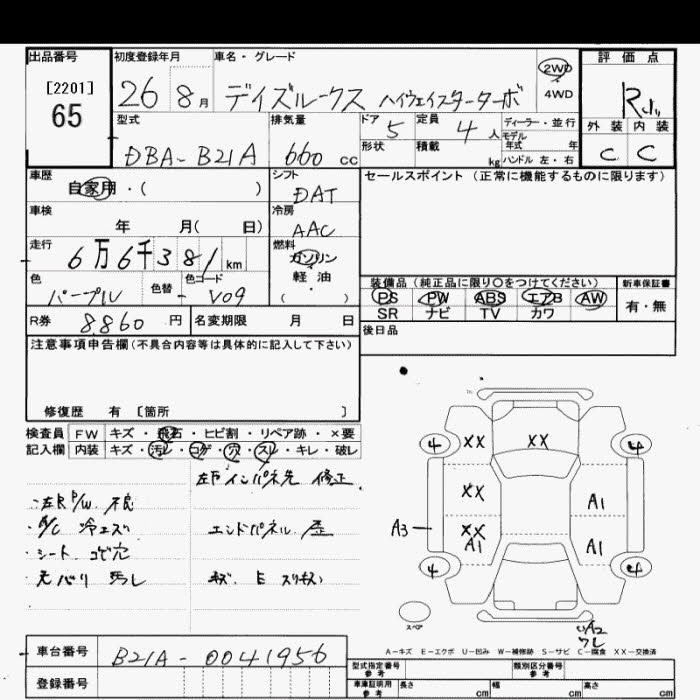 出品番号
[2201]
65
初度登録年月
26 8月
車名・グレード
デイズルークス ハイウェイスターターボ
2WD
4WD
評価点
R
外装 内装
C C
型式
DBA-B21A
排気量
660 cc
ドア
5
定員
4人
ディーラー・並行
モデル
年式 年
形状
積載
kg
ハンドル 左・右
車歴
自家用・( )
シフト
DAT
セールスポイント (正常に機能するものに限ります)
車検
年 月( 日)
冷房
AAC
走行
6万6千381km
燃料
ガソリン
軽・油
( ・ )
色
パープル
色替
-
色コード
V09
装備品 (純正品に限り〇をつけてください)
新車保証書
PS PW ABS エアB AW
SR ナビ TV カワ
有・無
R券
8,860円
名変期限 月 日
後日品
注意事項申告欄(不具合内容等は具体的に記入して下さい)
修復歴 有 [箇所 ]
検査員
記入欄
FW キズ・飛石・ヒビ割・リペア跡・×要
内装 キズ・汚レ・コゲ・穴・スレ・キレ・破レ
・左R P/W 不良
・A/C 冷エズ
・シート コゲ穴
エンドパネル 歪
4 XX XX 4
XX A1
A3
XX
A1 A1
4 4
スペア
A2
A-キズ E-エクボ U-凹み W-補修跡 S-サビ C-腐食 XX-交換済
車台番号
B21A-0041956
登録番号
型式指定番号
参考
類別区分番号
参考
車庫証明用
参考
長さ cm
幅 cm
高さ cm